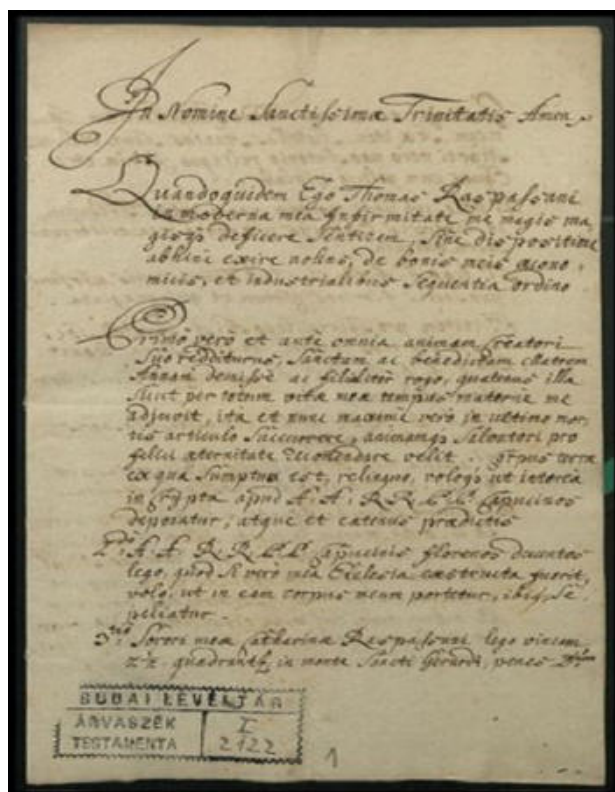 In Nomine Sanctissimæ Trinitatis Amen
Quandoquidem Ego Thomas Raspassani
in moderna mea Infirmitate me magis ma
gisq; deficere Sentirem, Sine dispositione
abhinc exire nolens, de bonis meis œcono
micis, et industrialibus Sequentia ordino
Primò vero et ante omnia animam Creatori
Suo redditurus, Sanctam ac benedictam Matrem
Annam demisse ac filialiter rogo, quatenus illa
Sicut per totum vitæ meæ tempus materne me
adjuvit, ita et nunc maxime vero in ultimo mor
tis articulo Succurrere, animamq; Salvatori pro
felici æternitate velit. Corpus terræ
ex qua Sumptum est, relinquo, voloq; ut
in Crypta apud A. A. R R. P. P. Capucinos
deponatur, atque et eatenus prædictis
A. A. R R. P. P. Capucinis florenos ducentos
lego, quod Si vero mea Ecclesia exstructa fuerit,
volo, ut in eam corpus meum portetur, ibiq; Se
peliatur.
3tio Sorori meæ Catharinæ Raspassani lego vineam
in monte Sancti Gerardi, penes
BUDAI LEVÉLTÁR
ÁRVASZÉK
TESTAMENTA
I
2122
1